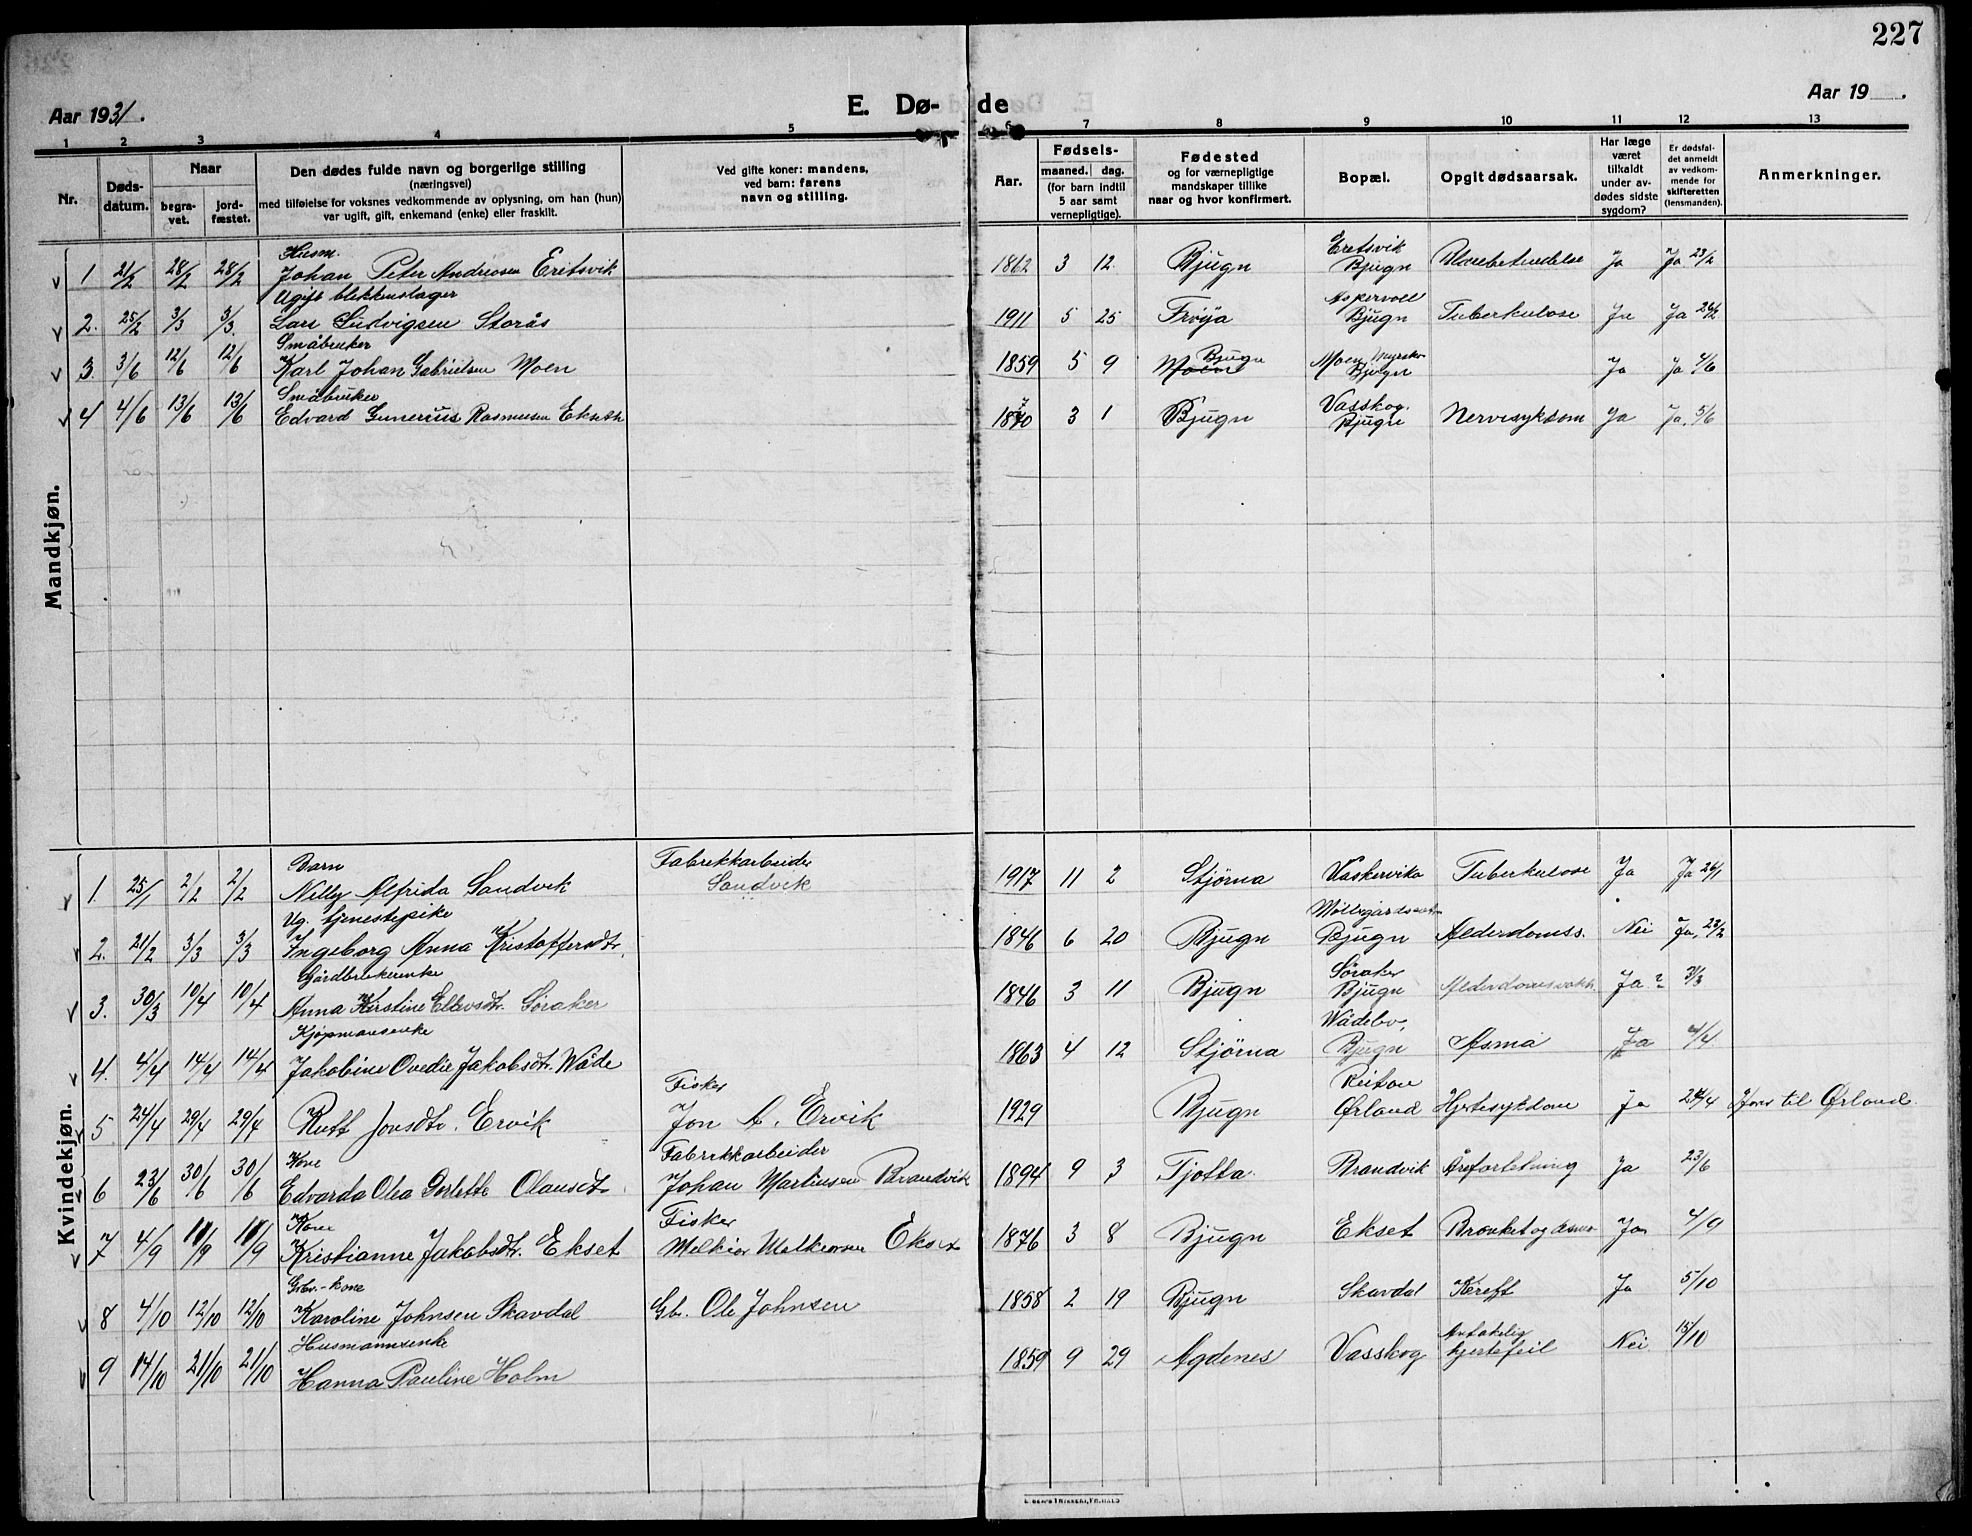 227
Aar 1931.
E. Dø- de
Aar 19 .
1 2 3 4 5 6 7 8 9 10 11 12 13
Nr.
Døds-
datum.
Naar
begra-
vet.
jord-
fæstet.
Den dødes fulde navn og borgerlige stilling
(næringsvei)
med tilføielse for voksnes vedkommende av oplysning, om han (hun)
var ugift, gift, enkemand (enke) eller fraskilt.
Ved gifte koner: mandens,
ved barn: farens
navn og stilling.
Aar.
Fødsels-
maaned. dag.
(for barn indtil
5 aar samt
vernepligtige).
Fødested
og for værnepligtige
mandskaper tillike
naar og hvor konfirmert.
Bopæl.
Opgit dødsaarsak.
Har læge
været
tilkaldt
under av-
dødes sidste
sygdom?
Er dødsfal-
det anmeldt
av vedkom-
mende for
skifteretten
(lensmanden).
Anmerkninger.
Mandkjøn.
Husm. Eretsvik
1 21/2 28/2 28/2 Johan Peter Andreasen Eritsvik 1862 3 12. Bjugn Bjugn Ja Ja 23/2
Ugift blikkenslager Aspervoll
2. 25/2 3/3 3/3. Lars Ludvigsen Storås 1911 5 25 Frøya Bjugn Tuberkulose Ja Ja 26/2
Småbruker Bjugn
3. 3/6 12/6 12/6 Karl Johan Gabrielsen Moen 1859 5 9 Moen Bjugn Ja Ja 4/6
Småbruker Vasskog.
4 4/6 13/6 13/6 Edvard Gunerius Rasmussen Ekseth 1870 3 1 Bjugn Bjugn Nervesykdom Ja Ja. 5/6
Kvindekjøn.
Barn Fabrikkarbeider
1. 25/1 2/2 2/2 Nilly Alfrida Sandvik Sandvik 1917 11 2 Stjørna Vaskervika Tuberkulose Ja Ja 26/1
Ug. tjenestepike
2. 21/2 3/3 3/3 Ingeborg Anna Kristoffersdtr. 1846 6 20 Bjugn Bjugn Alderdomss. Nei Ja, 23/2
Gårdbrukerenke Søraker
3. 30/3 10/4 10/4 Anna Kirstine Ellevsdtr. Søraker 1846 3 11 Bjugn Bjugn Ja ? 31/3
Kjøpmansenke Wådebo,
4. 4/4 14/4 14/4 Jakobine Ovedie Jakobsdtr. Wåde 1863 4 12 Stjørna Bjugn Asma Ja 4/4
Fisker Reitan
5. 24/4 29/4 29/4 Rutt Jonsdtr. Ervik Jon A. Ervik 1929 Bjugn Ørland Hjertesykdom Ja 24/4 til Ørland.
Kone Fabrikkarbeider
6 23/6 30/6 30/6 Edvarda Olea Dorlette Olausdtr. Johan Martinsen Brandvik 1894 9 3 Tjøtta. Brandvik Åreforletning Ja 23/6
Kone Fisker
7 4/9 11/9 11/9 Kristianne Jakobsdtr. Ekset Melkior Melkiorsen Ekset 1876 3 8 Bjugn Ekset Bronkit og Asma Ja 4/9
Gbr.-kone
8 4/10 12/10 12/10 Karoline Johnsen Skavdal Gb. Ole Johnsen 1858 2 19 Bjugn Skavdal Kreft Ja 5/10
Husmannsenke Antakelig
9 14/10 21/10 21/10 Hanna Pauline Holm 1859 9 29 Agdenes Vasskog hjertefeil Nei 15/10